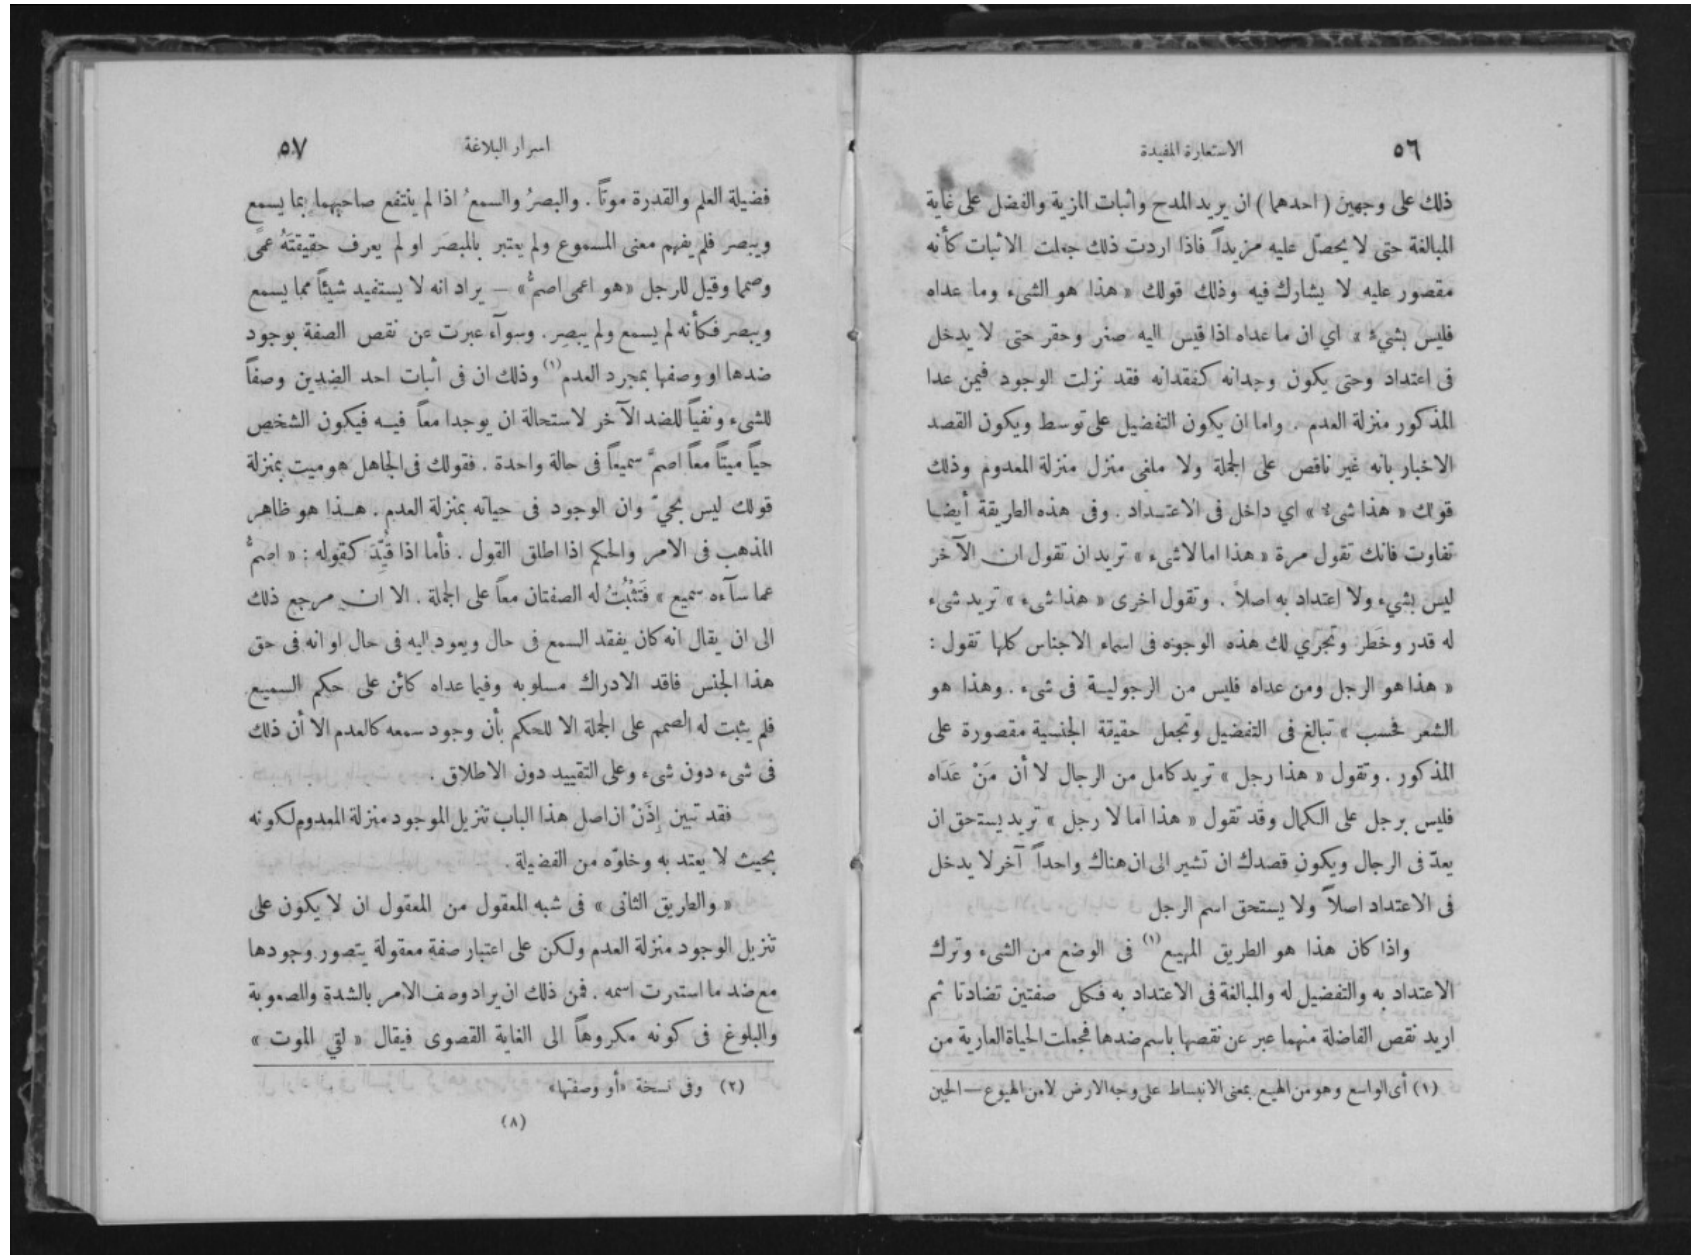 ٥٦
الاستعارة المفيدة
ذلك على وجهين ( احدهما ) ان يريد المدح واثبات المزية والفضل على غاية
المبالغة حتى لا يحصل عليه مزيداً فاذا اردت ذلك جعلت الاثبات كأنه
مقصور عليه لا يشارك فيه وذلك قولك « هذا هو الشيء وما عداه
فليس بشيء » اي ان ما عداه اذا قيس اليه صغر وحقر حتى لا يدخل
فى اعتداد وحتى يكون وجدانه كفقدانه فقد نزلت الوجود فيمن عدا
المذكور منزلة العدم . واما ان يكون التفضيل على توسط ويكون القصد
الاخبار بانه غير ناقص على الجملة ولا ملغى منزل منزلة المعدوم وذلك
قولك « هذا شيء » اي داخل فى الاعتداد . وفى هذه الطريقة أيضا
تفاوت فانك تقول مرة « هذا اما لا شيء » تريد ان تقول ان الآخر
ليس بشيء ولا اعتداد به اصلاً . وتقول اخرى « هذا شيء » تريد شيء
له قدر وخَطَر وتجري لك هذه الوجوه فى اسماء الاجناس كلها تقول :
« هذا هو الرجل ومن عداه فليس من الرجولية فى شيء . وهذا هو
الشعر فحسب » تبالغ فى التفضيل وتجعل حقيقة الجنسية مقصورة على
المذكور . وتقول « هذا رجل » تريد كامل من الرجال لا أن مَنْ عَدَاه
فليس برجل على الكمال وقد تقول « هذا اما لا رجل » تريد يستحق ان
يعدّ فى الرجال ويكون قصدك ان تشير الى ان هناك واحداً آخر لا يدخل
فى الاعتداد اصلاً ولا يستحق اسم الرجل
واذا كان هذا هو الطريق المهيع (١) فى الوضع من الشيء وترك
الاعتداد به والتفضيل له والمبالغة فى الاعتداد به فكل صفتين تضادتا ثم
اريد نقص الفاضلة منهما عبر عن نقصها باسم ضدها فجعلت الحياة العارية من
(١) أى الواسع وهو من الهيع بمعنى الانبساط على وجه الارض لا من الهيوع — الجبن
اسرار البلاغة
٥٧
فضيلة العلم والقدرة موتاً . والبصرُ والسمعُ اذا لم ينتفع صاحبهما بما يسمع
ويبصر فلم يفهم معنى المسموع ولم يعتبر بالمبصَر او لم يعرف حقيقتَهُ عمىً
وصمما وقيل للرجل « هو اعمى اصمُّ » — يراد انه لا يستفيد شيئاً مما يسمع
ويبصر فكأنه لم يسمع ولم يبصر . وسوآء عبرت عن نقص الصفة بوجود
ضدها او وصفها بمجرد العدم (١) وذلك ان فى أثبات احد الضدين وصفاً
للشيء ونفياً للضد الآخر لاستحالة ان يوجدا معاً فيه فيكون الشخص
حياً ميتاً معاً اصمَّ سميعاً فى حالة واحدة . فقولك فى الجاهل هو ميت بمنزلة
قولك ليس بحيّ وان الوجود فى حياته بمنزلة العدم . هذا هو ظاهر
المذهب فى الامر والحكم اذا اطلق القول . فأما اذا قُيّدَ كقوله : « اصمُّ
عما سآءه سميع » فَتَثْبُتُ له الصفتان معاً على الجملة . الا ان مرجع ذلك
الى ان يقال انه كان يفقد السمع فى حال ويعود اليه فى حال او انه فى حق
هذا الجنس فاقد الادراك مسلوبه وفيما عداه كائن على حكم السميع
فلم يثبت له الصمم على الجملة الا للحكم بأن وجود سمعه كالعدم الا أن ذلك
فى شيء دون شيء وعلى التقييد دون الاطلاق .
فقد تبين إِذَنْ ان اصل هذا الباب تنزيل الموجود منزلة المعدوم لكونه
بحيث لا يعتد به وخلوّه من الفضيلة .
« والطريق الثانى » فى شبه المعقول من المعقول ان لا يكون على
تنزيل الوجود منزلة العدم ولكن على اعتبار صفة معقولة يتصور وجودها
مع ضد ما استعرت اسمه . فمن ذلك ان يراد وصف الامر بالشدة والصعوبة
والبلوغ فى كونه مكروهاً الى الغاية القصوى فيقال « لقي الموت »
(٢) وفى نسخة «أو وصفتها»
(٨)